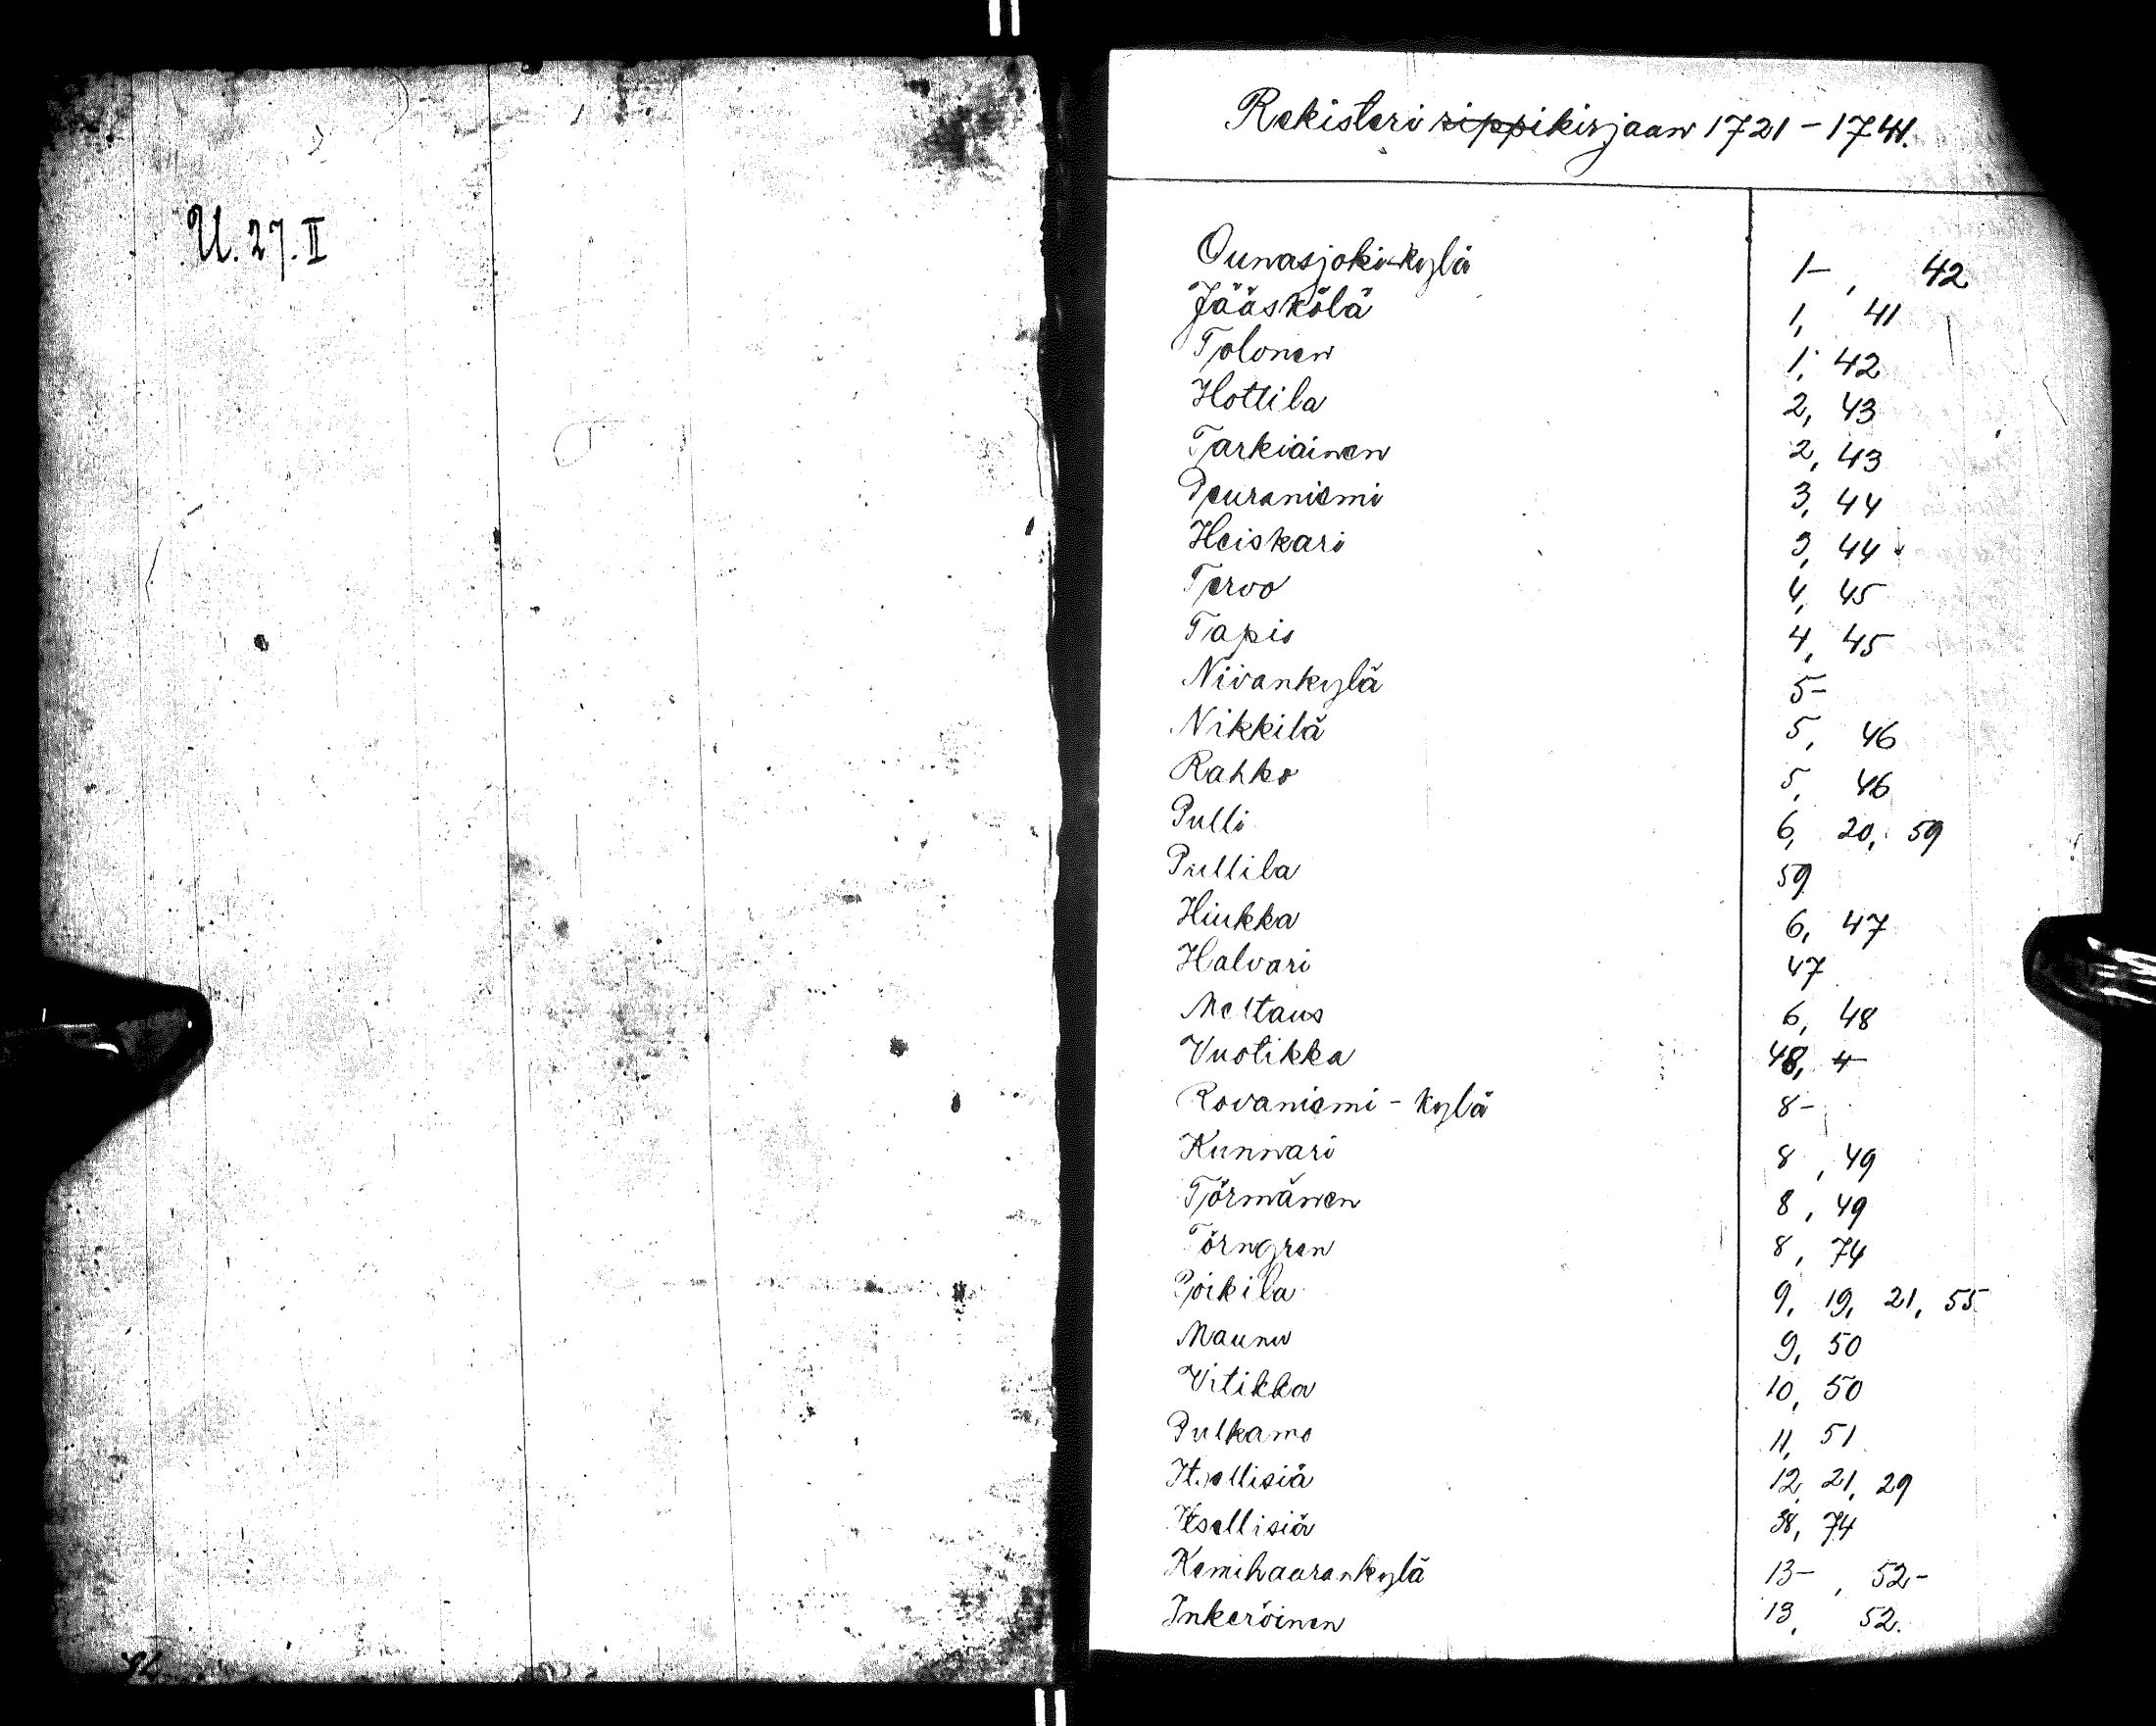 U. 27. II
Rekisteri rippikirjaan 1721-1741.
Ounasjoki-kylä 1-, 42
Jääskölä 1, 41
Tolonen 1, 42
Hottila 2, 43
Tarkiainen 2, 43
Peuraniemi 3, 44
Heiskari 3, 44
Tervo 4, 45
Tapio 4, 45
Nivankylä 5-
Nikkilä 5, 46
Rahko 5, 46
Pulli 6, 20, 59
Pullila 59
Hiukka 6, 47
Halvari 47
Meltaus 6, 48
Vuotikka 48, 4
Rovaniemi-kylä 8-
Kunnari 8, 49
Törmänen 8, 49
Törngren 8, 74
Poikila 9, 19, 21, 55
Maunu 9, 50
Vitikka 10, 50
Pulkamo 11, 51
Itsellisiä 12, 21, 29
Itsellisiä 38, 74
Kemihaarankylä 13-, 52-
Inkeröinen 13, 52.